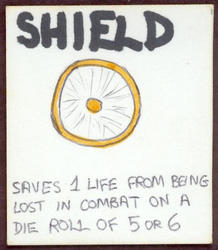 SHIELD
SAVES 1 LIFE FROM BEING
LOST IN COMBAT ON A
DIE ROLL OF 5 OR 6